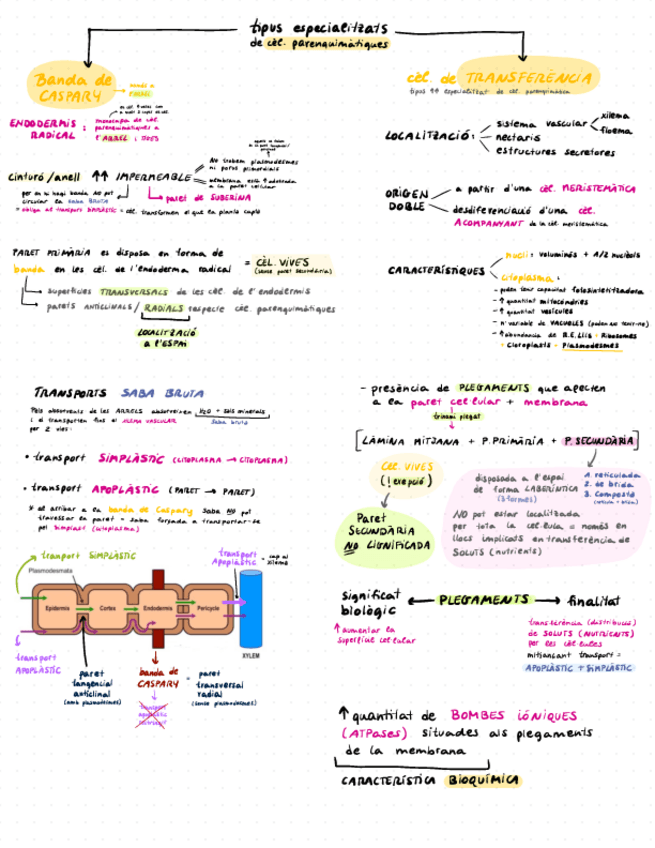 tipus especialitzats
de cèl. parenquimàtiques
Banda de
CASPARY
cèl. de TRANSFERÈNCIA
tipus ↑↑ especialitzat de cèl. parenquimàtica
ENDODERMIS
RADICAL :
monocapa de cèl.
parenquimàtiques a
l'ARREL i TIGES
LOCALITZACIÓ :
sistema vascular
xilema
floema
nectaris
estructures secretores
cinturó/anell ↑↑ IMPERMEABLE
No trobem plasmodesmes
ni poros primordials
membrana està ↑ adossada
a la paret cel·lular
per on hi hagi banda NO pot
circular la SABA BRUTA
paret de SUBERINA
ORIGEN
DOBLE
a partir d'una cèl. MERISTEMÀTICA
desdiferenciació d'una cèl.
ACOMPANYANT de la cèl. meristemàtica
PARET PRIMÀRIA es disposa en forma de
banda en les cèl. de l'endoderma radical
= CÈL. VIVES
(sense paret secundària)
superfícies TRANSVERSALS de les cèl. de l'endodermis
parets ANTICLINALS / RADIALS respecte cèl. parenquimàtiques
LOCALITZACIÓ
A L'ESPAI
CARACTERÍSTIQUES
nucli : voluminós + A/2 nuclèols
citoplasma :
- poden tenir capacitat fotosintetitzadora
- ↑ quantitat mitocòndries
- ↑ quantitat vesícules
- nº variable de VACUOLES (poden no tenir-ne)
- ↑ abundància de R.E. Llis + Ribosomes
+ Cloroplasts + Plasmodesmes
TRANSPORTS SABA BRUTA
Pèls absorvents de les ARRELS absorveixen H2O + sals minerals
i el transporten fins el XILEMA VASCULAR
saba bruta
per 2 vies:
• transport SIMPLÀSTIC (CITOPLASMA → CITOPLASMA)
• transport APOPLÀSTIC (PARET → PARET)
* al arribar a la banda de Caspary saba NO pot
travessar la paret - saba forçada a transportar-se
pel simplast (citoplasma)
- presència de PLEGAMENTS que afecten
a la paret cel·lular + membrana
[LÀMINA MITJANA + P. PRIMÀRIA + P. SECUNDÀRIA]
CÈL. VIVES
(! exepció)
Paret
SECUNDÀRIA
NO LIGNIFICADA
disposada a l'espai
de forma LABERÍNTICA
(3 formes)
1. reticulada
2. de brida
3. Composta
NO pot estar localitzada
per tota la cèl·lula = només en
llocs implicats en transferència de
SOLUTS (nutrients)
transport SIMPLÀSTIC
transport
Apoplàstic
- cap al
xilema
Plasmodesmata
Epidermis
Cortex
Endodermis
Pericycle
XYLEM
transport
APOPLÀSTIC
paret
tangencial
anticlinal
(amb plasmodesmes)
banda de
CASPARY
= paret
transversal
radial
(sense plasmodesmes)
significat
biològic
↑ augmentar la
superfície cel·lular
PLEGAMENTS
finalitat
transferència (distribució)
de SOLUTS (NUTRIENTS)
per les cèl·lules
mitjançant transport =
APOPLÀSTIC + SIMPLÀSTIC
↑ quantitat de BOMBES IÒNIQUES
(ATPases) situades als plegaments
de la membrana
CARACTERÍSTICA BIOQUÍMICA